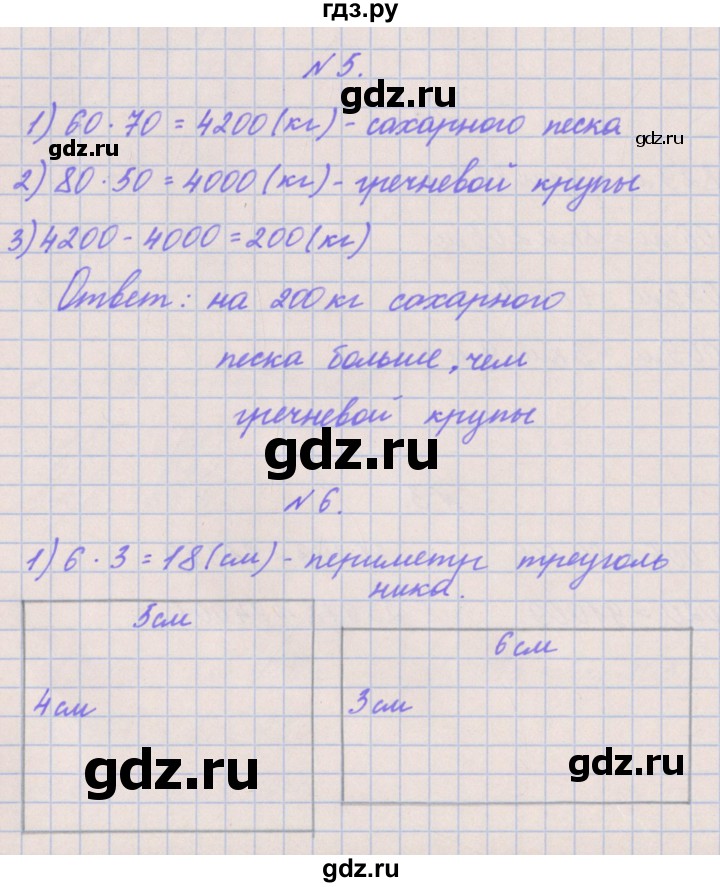 гдз.ру
№5.
gdz.ru
1) 60 · 70 = 4200 (кг) - сахарного песка
gdz.ru
gdz.ru
2) 80 · 50 = 4000 (кг) - гречневой крупы
3) 4200 - 4000 = 200 (кг)
Ответ: на 200 кг сахарного
песка больше, чем
гречневой крупы
gdz.ru
№6.
1) 6 · 3 = 18 (см) - периметр треуголь
ника.
5см
6см
4см
3см
gdz.ru
gdz.ru
gdz.ru